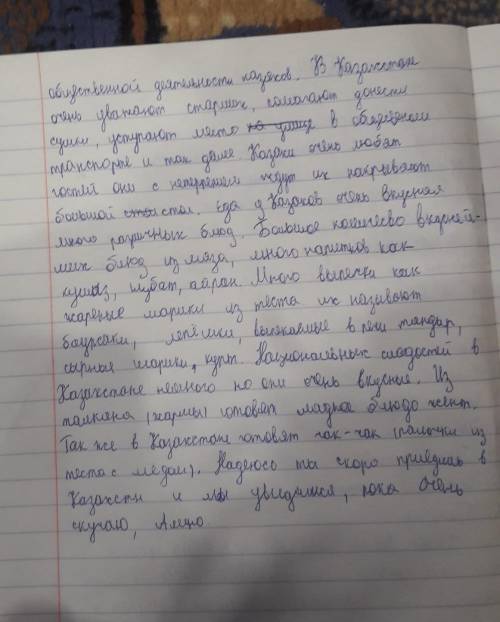 общественной деятельности казахов. В Казахстане
очень уважают старших, помогают донести
сумки, уступают место в общественном
транспорте и так далее. Казахи очень любят
гостей они с нетерпением ждут их накрывают
большой стол. Еда у Казахов очень вкусная
много различных блюд. Большое количево вкусней-
ших блюд из мяса, много напитков как
кумыз, шубат, айран. Много выпечки как
жареные шарики из теста их называют
баурсаки, лепёшки, выпекаемые в печи тандыр,
сырные шарики, курт. Национальных сладостей в
Казахстане немного но они очень вкусные. Из
талкана (жармы) готовят сладкое блюдо жент.
Так же в Казахстане готовят чак-чак (палочки из
теста с мёдом). Надеюсь ты скоро приедешь в
Казахстн и мы увидимся, пока очень
скучаю,